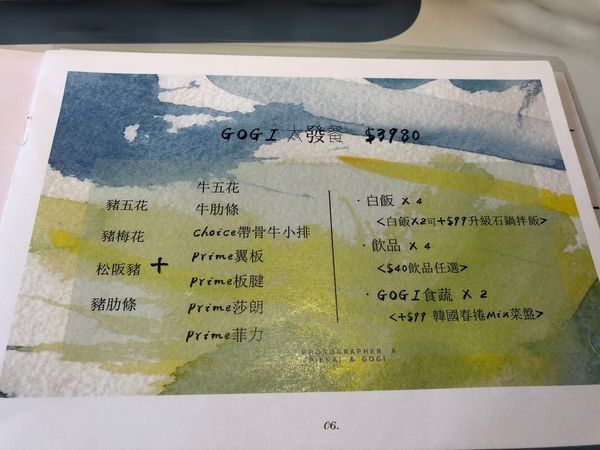 GOGI 大發餐 $3980
豬五花
豬梅花
松阪豬
豬肋條
+
牛五花
牛肋條
choice帶骨牛小排
prime翼板
prime板腱
prime莎朗
prime菲力
·白飯 X 4
<白飯X2可+$99升級石鍋拌飯>
·飲品 X 4
<$40飲品任選>
·GOGI食蔬 X 2
<+$99 韓國春捲Mini菜盤>
PHOTOGRAPHER A
& GOGI
06.